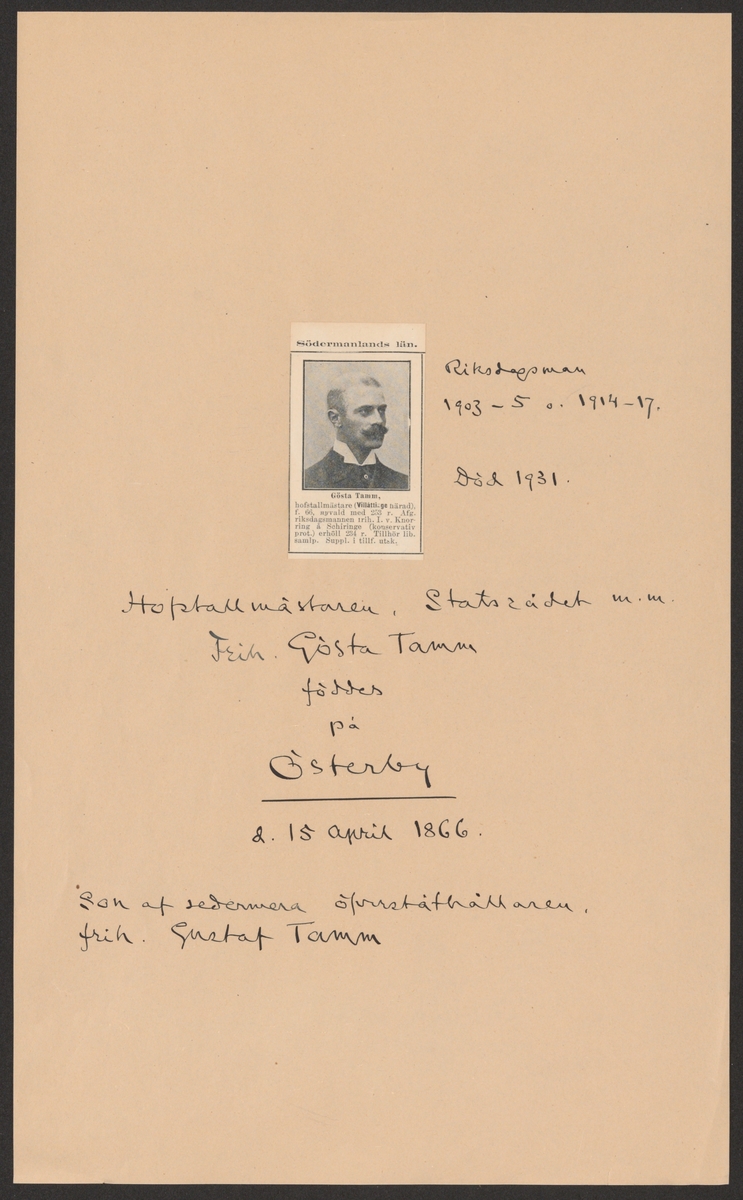 Södermanlands län.
Gösta Tamm,
hofstallmästare (Villåttinge härad),
f. 66, nyvald med 253 r. Afg.
riksdagsmannen frih. I. v. Knor-
ring å Schiringe (konservativ
prot.) erhöll 234 r. Tillhör lib.
samlp. Suppl. i tillf. utsk.
Riksdagsman
1903–5 o. 1914–17.
Död 1931.
Hofstallmästaren, Statsrådet m.m.
Frih. Gösta Tamm
föddes
på
Österby
d. 15 april 1866.
Son af sedermera öfverståthållaren,
frih. Gustaf Tamm